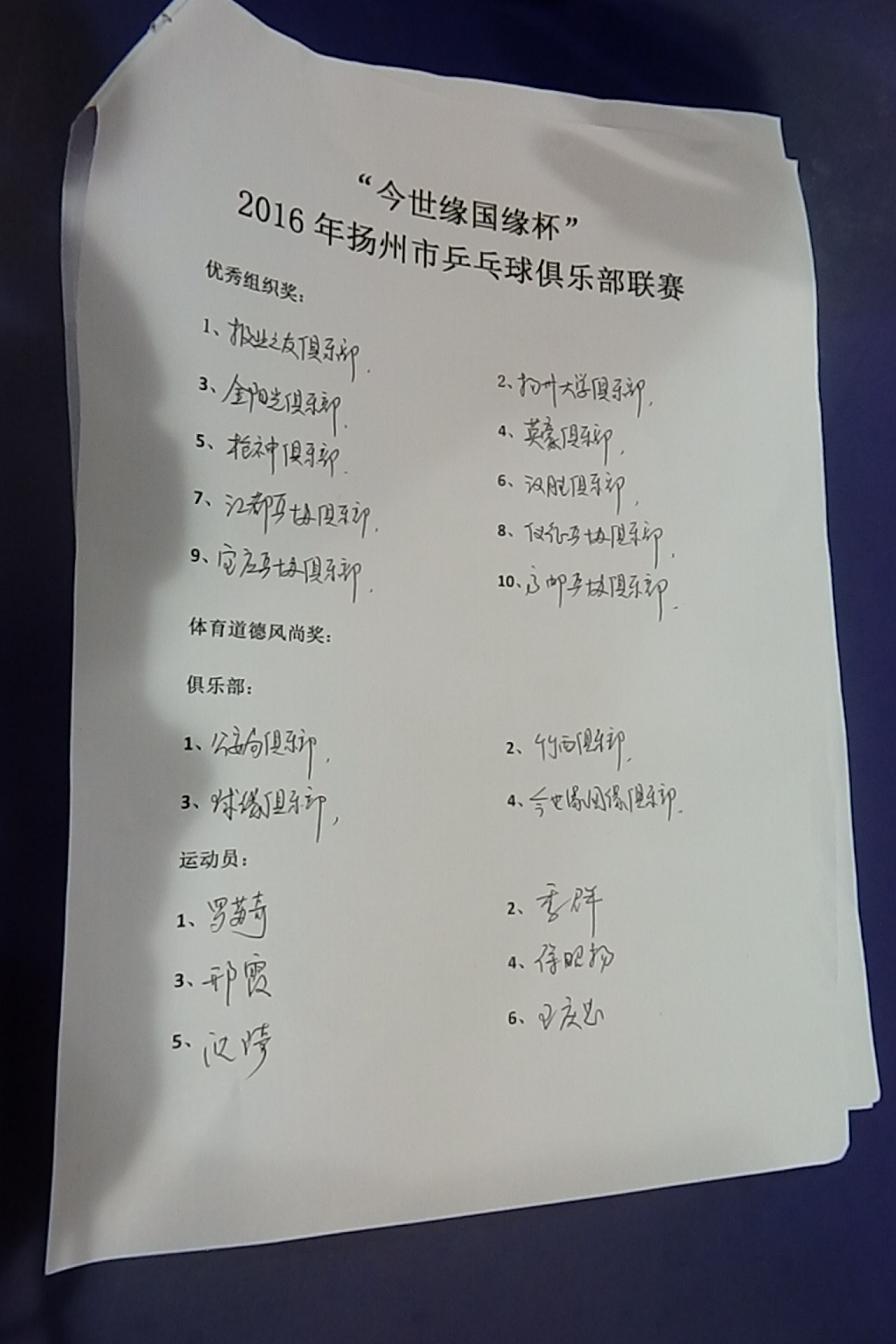 “今世缘国缘杯”
2016 年扬州市乒乓球俱乐部联赛
优秀组织奖：
1、报业之友俱乐部.
2、扬州大学俱乐部.
3、金阳光俱乐部.
4、英豪俱乐部.
5、枪神俱乐部.
6、汉胜俱乐部.
7、江都乒协俱乐部.
8、仪征乒协俱乐部.
9、宝应乒协俱乐部.
10、高邮乒协俱乐部.
体育道德风尚奖：
俱乐部：
1、公安局俱乐部.
2、竹西俱乐部.
3、球缘俱乐部,
4、今世缘国缘俱乐部.
运动员：
1、罗
2、季群
3、邢霞
4、徐昭扬
5、
6、王庆忠